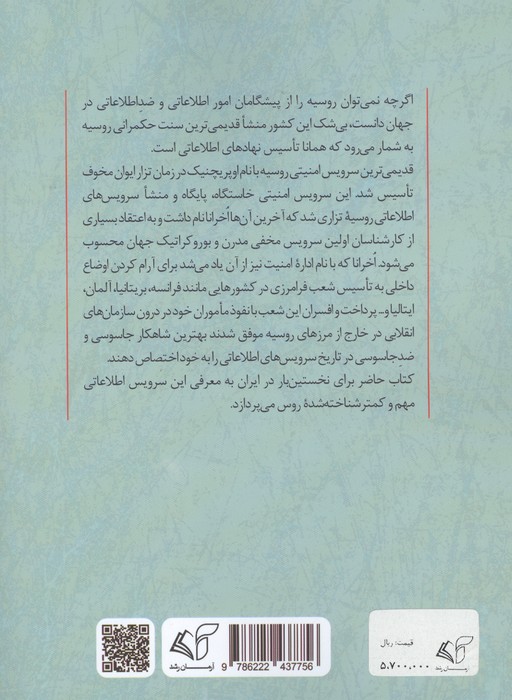 اگرچه نمی‌توان روسیه را از پیشگامان امور اطلاعاتی و ضداطلاعاتی در
جهان دانست، بی‌شک این کشور منشأ قدیمی‌ترین سنت حکمرانی روسیه
به شمار می‌رود که همانا تأسیس نهادهای اطلاعاتی است.
قدیمی‌ترین سرویس امنیتی روسیه با نام اوپریچنیک در زمان تزار ایوان مخوف
تأسیس شد. این سرویس امنیتی خاستگاه، پایگاه و منشأ سرویس‌های
اطلاعاتی روسیهٔ تزاری شد که آخرین آن‌ها اُخرانا نام داشت و به اعتقاد بسیاری
از کارشناسان اولین سرویس مخفی مدرن و بوروکراتیک جهان محسوب
می‌شود. اُخرانا که با نام ادارهٔ امنیت نیز از آن یاد می‌شد برای آرام کردن اوضاع
داخلی به تأسیس شعب فرامرزی در کشورهایی مانند فرانسه، بریتانیا، آلمان،
ایتالیا و... پرداخت و افسران این شعب با نفوذ مأموران خود در درون سازمان‌های
انقلابی در خارج از مرزهای روسیه موفق شدند بهترین شاهکار جاسوسی و
ضدِجاسوسی در تاریخ سرویس‌های اطلاعاتی را به خود اختصاص دهند.
کتاب حاضر برای نخستین‌بار در ایران به معرفی این سرویس اطلاعاتی
مهم و کمتر شناخته‌شدهٔ روس می‌پردازد.
قیمت: ریال
۵.۷۰۰.۰۰۰
آرمان رشد
آرمان رشد
9 786222 437756